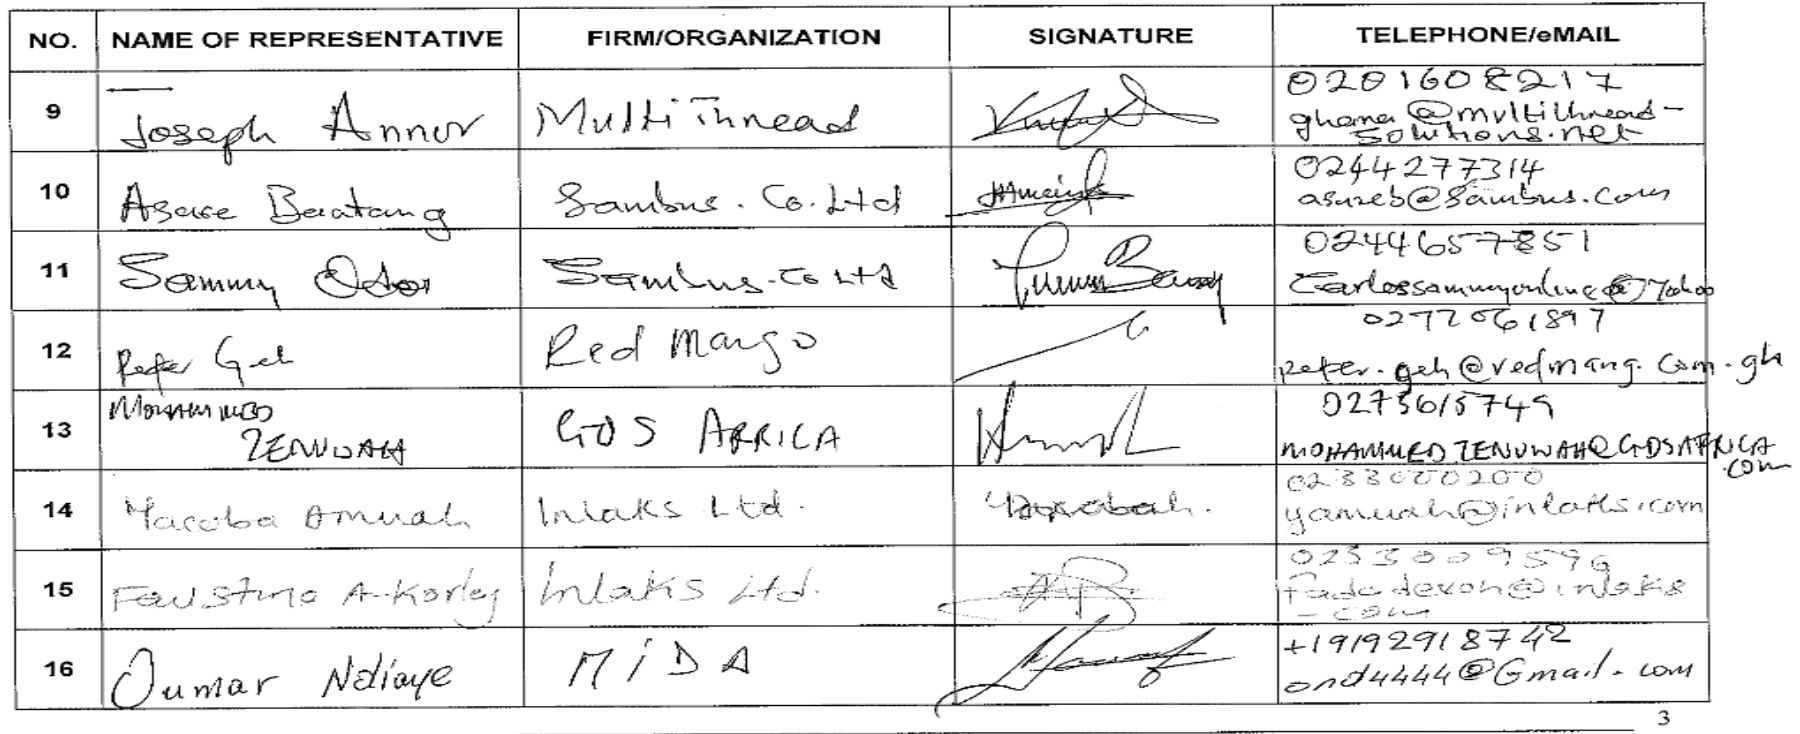 NO. NAME OF REPRESENTATIVE FIRM/ORGANIZATION SIGNATURE TELEPHONE/eMAIL
9 Joseph Annor MultiThread 0201608217
ghana@multithread-
solutions.net
10 Asare Baatang Sambus. Co. Ltd 0244277314
asareb@sambus.com
11 Sammy Odoi Sambus. Co Ltd 0244657851
@Yahoo
12 Peter Geh Red Mango 0277261897
peter.geh@redmang.com.gh
13 MOHAMMED GDS AFRICA 0275615749
ZENUWAH MOHAMMED.ZENUWAH@GDSAFRICA
.com
14 Yacoba Amuah Inlaks Ltd. Yacobah. 0233000200
yamuah@inlaks.com
15 Faustina A-Korley Inlaks Ltd. 0233009596
fadadevoh@inlaks
-com
16 Oumar Ndiaye MiDA +19192918742
ond4444@Gmail.com
3